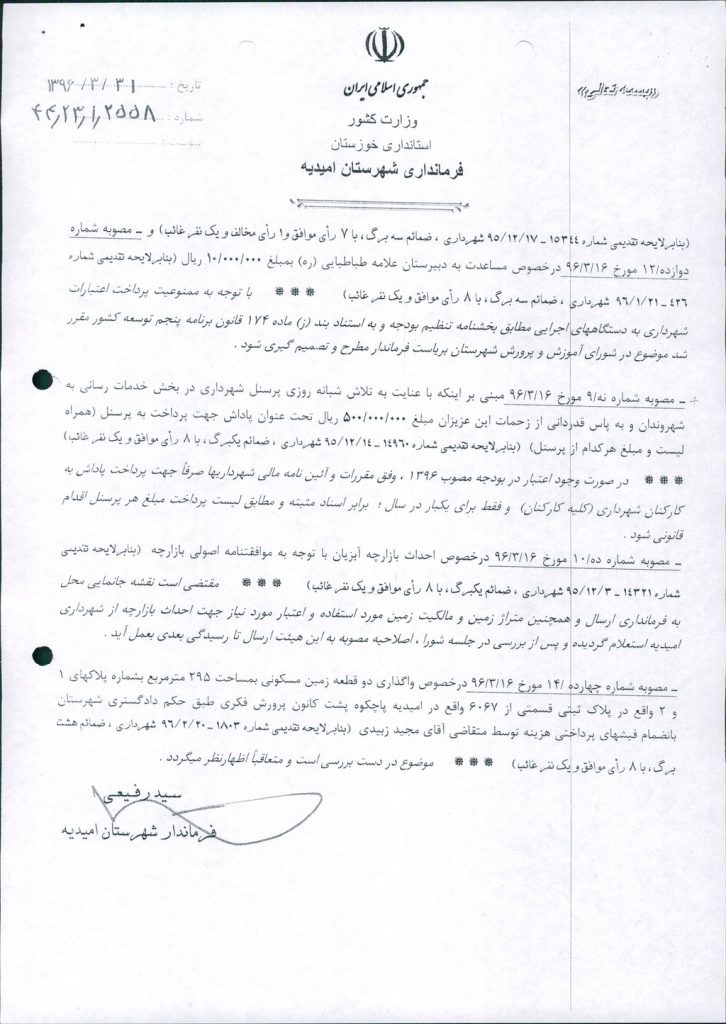 بسمه تعالی
جمهوری اسلامی ایران
وزارت کشور
استانداری خوزستان
فرمانداری شهرستان امیدیه
تاریخ : ۱۳۹۶/۳/۳۱
شماره : ۴۴,۲۳,۱,۲۵۵۸
پیوست :
(بنابرلایحه تقدیمی شماره ۱۵۳۴۴ ـ ۹۵/۱۲/۱۷ شهرداری ، ضمائم سه برگ، با ۷ رأی موافق و۱ رأی مخالف و یک نفر غائب) و ـ مصوبه شماره
دوازده/۱۲ مورخ ۹۶/۳/۱۶ درخصوص مساعدت به دبیرستان علامه طباطبایی (ره) بمبلغ ۱۰/۰۰۰/۰۰۰ ریال (بنابرلایحه تقدیمی شماره
۴۲۶ ـ ۹۶/۱/۲۱ شهرداری ، ضمائم سه برگ، با ۸ رأی موافق و یک نفر غائب) *** با توجه به ممنوعیت پرداخت اعتبارات
شهرداری به دستگاههای اجرایی مطابق بخشنامه تنظیم بودجه و به استناد بند (ز) ماده ۱۷۴ قانون برنامه پنجم توسعه کشور مقرر
شد موضوع در شورای آموزش و پرورش شهرستان بریاست فرماندار مطرح و تصمیم گیری شود .
+ ـ مصوبه شماره نه/۹ مورخ ۹۶/۳/۱۶ مبنی بر اینکه با عنایت به تلاش شبانه روزی پرسنل شهرداری در بخش خدمات رسانی به
شهروندان و به پاس قدردانی از زحمات این عزیزان مبلغ ۵۰۰/۰۰۰/۰۰۰ ریال تحت عنوان پاداش جهت پرداخت به پرسنل (همراه
لیست و مبلغ هرکدام از پرسنل) (بنابرلایحه تقدیمی شماره ۱۴۹۶۰ ـ ۹۵/۱۲/۱۴ شهرداری ، ضمائم یکبرگ، با ۸ رأی موافق و یک نفر غائب)
*** در صورت وجود اعتبار در بودجه مصوب ۱۳۹۶ ، وفق مقررات و آئین نامه مالی شهرداریها صرفاً جهت پرداخت پاداش به
کارکنان شهرداری (کلیه کارکنان) و فقط برای یکبار در سال ؛ برابر اسناد مثبته و مطابق لیست پرداخت مبلغ هر پرسنل اقدام
قانونی شود .
ـ مصوبه شماره ده/۱۰ مورخ ۹۶/۳/۱۶ درخصوص احداث بازارچه آبزیان با توجه به موافقتنامه اصولی بازارچه (بنابرلایحه تقدیمی
شماره ۱۴۳۲۱ ـ ۹۵/۱۲/۳ شهرداری ، ضمائم یکبرگ، با ۸ رأی موافق و یک نفر غائب) *** مقتضی است نقشه جانمایی محل
به فرمانداری ارسال و همچنین متراژ زمین و مالکیت زمین مورد استفاده و اعتبار مورد نیاز جهت احداث بازارچه از شهرداری
امیدیه استعلام گردیده و پس از بررسی در جلسه شورا ، اصلاحیه مصوبه به این هیئت ارسال تا رسیدگی بعدی بعمل آید .
ـ مصوبه شماره چهارده /۱۴ مورخ ۹۶/۳/۱۶ درخصوص واگذاری دو قطعه زمین مسکونی بمساحت ۲۹۵ مترمربع بشماره پلاکهای ۱
و ۲ واقع در پلاک ثبتی قسمتی از ۶۰۶۷ واقع در امیدیه پاچکوه پشت کانون پرورش فکری طبق حکم دادگستری شهرستان
بانضمام فیشهای پرداختی هزینه توسط متقاضی آقای مجید زبیدی (بنابرلایحه تقدیمی شماره ۱۸۰۳ ـ ۹۶/۲/۲۰ شهرداری ، ضمائم هشت
برگ، با ۸ رأی موافق و یک نفر غائب) *** موضوع در دست بررسی است و متعاقباً اظهارنظر میگردد .
سید رفیعی
فرماندار شهرستان امیدیه